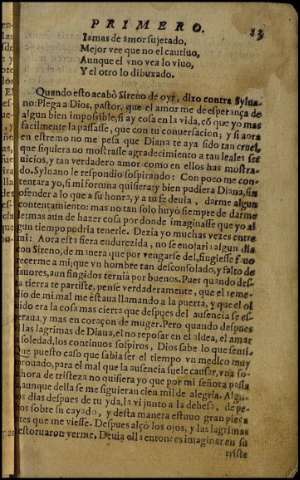 PRIMERO. 83
Iamas de amor sujetado,
Mejor vee que no el cautiuo,
Aunque el vno vea lo viuo,
Y el otro lo dibuxado.
Quando esto acabò Sireno de oyr, dixo contra Sylua-
no: Plega a Dios, pastor, que el amor me de esperança de
algun bien impossible, si ay cosa en la vida, cõ que yo mas
facilmente la passasse, que con tu conuersacion; y si aora
en estremo no me pesa que Diana te aya sido tan cruel,
que siquiera no mostrasse agradecimiento a tan leales ser
uicios, y tan verdadero amor como en ellos has mostra-
do. Syluano le respondio sospirando: Con poco me con-
tentara yo, si mi fortuna quisiera; y bien pudiera Diana, sin
ofender a lo que a su honra, y a tu fe deuia, darme algun
contentamiento: mas no tan solo huyò siempre de darme
mas aun de hazer cosa por donde imaginasse que yo al
gun tiempo podria tenerle. Dezia yo muchas vezes entre
mi: Aora esta fiera endurecida, no se enojaria algun dia
con Sireno, de manera que por vengarse del, fingiesse fauo
recerme a mi, que vn hombre tan desconsolado, y falto de
fauores, aun fingidos ternia por buenos. Pues quando des
ta tierra te partiste, pense verdaderamente, que el reme-
dio de mi mal me estaua llamando a la puerta, y que el ol
uido era la cosa mas cierta que despues del ausencia se es-
peraua, y mas en coraçon de muger. Pero quando despues
vi las lagrimas de Diana, el no reposar en el aldea, el amar
la soledad, los continuos sospiros, Dios sabe lo que senti.
Que puesto caso que sabia ser el tiempo vn medico muy
prouado, para el mal que la ausencia suele causar, vna so-
la hora de tristeza no quisiera yo que por mi señora passa
aunque della se me siguieran cien mil de alegria. Algu-
nos dias despues de tu yda, la vi junto a la dehesa, de pe-
chos sobre su cayado, y desta manera estuuo gran pieça
antes que me viesse. Despues alçò los ojos, y las lagrimas
estoruaron verme, Deuia ella entonces imaginar en su
triste